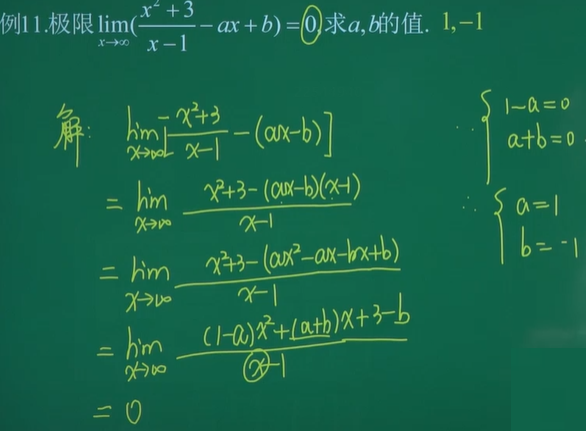 例11.极限lim(x→∞)((x²+3)/(x-1) - ax + b) = 0,求a,b的值. 1,-1
解: lim(x→∞)[(x²+3)/(x-1) - (ax-b)]
= lim(x→∞) (x²+3-(ax-b)(x-1))/(x-1)
= lim(x→∞) (x²+3-(ax²-ax-bx+b))/(x-1)
= lim(x→∞) ((1-a)x²+(a+b)x+3-b)/(x-1)
= 0
∵ { 1-a=0
a+b=0
∴ { a=1
b=-1